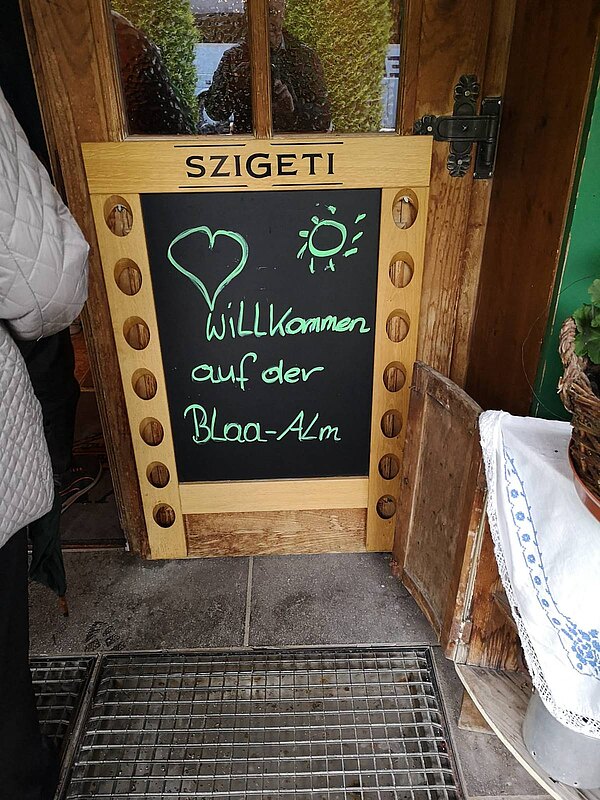 SZIGETI
Willkommen
auf der
Blaa-Alm